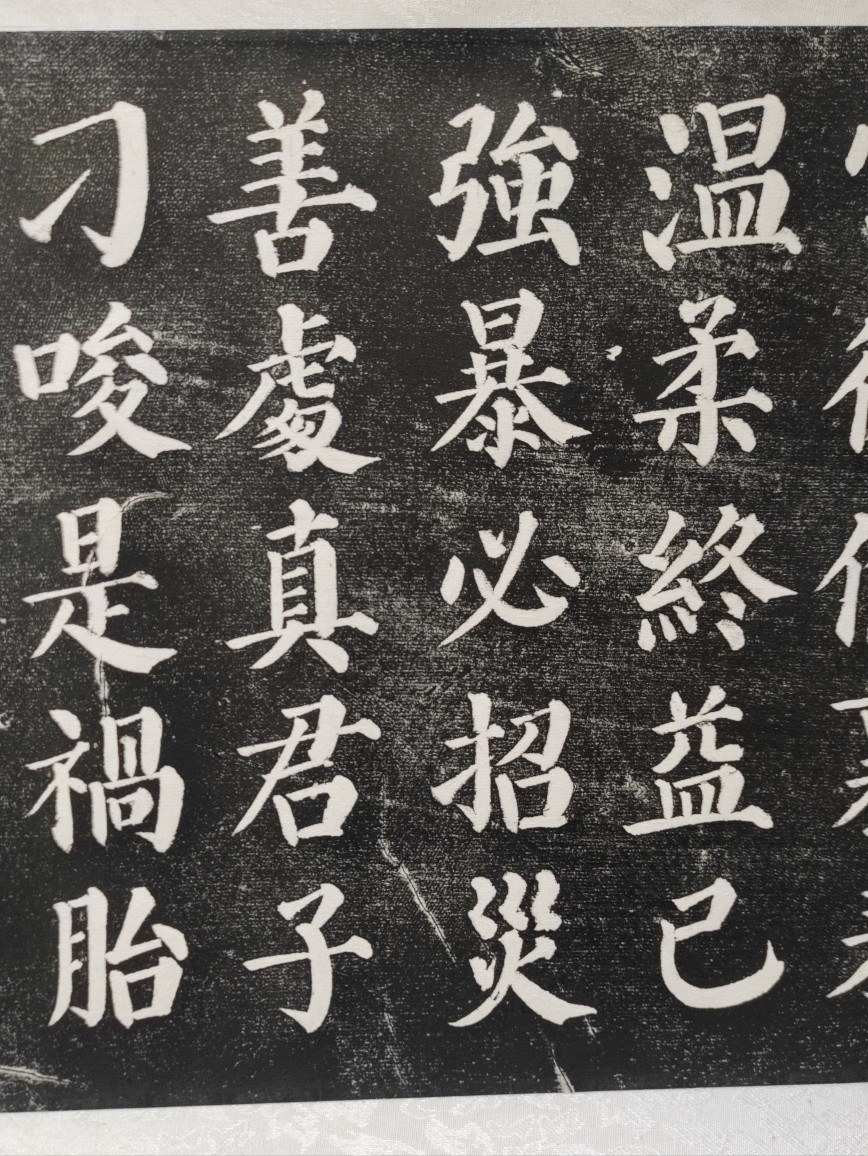 温柔終益己
強暴必招災
善處真君子
刁唆是禍胎